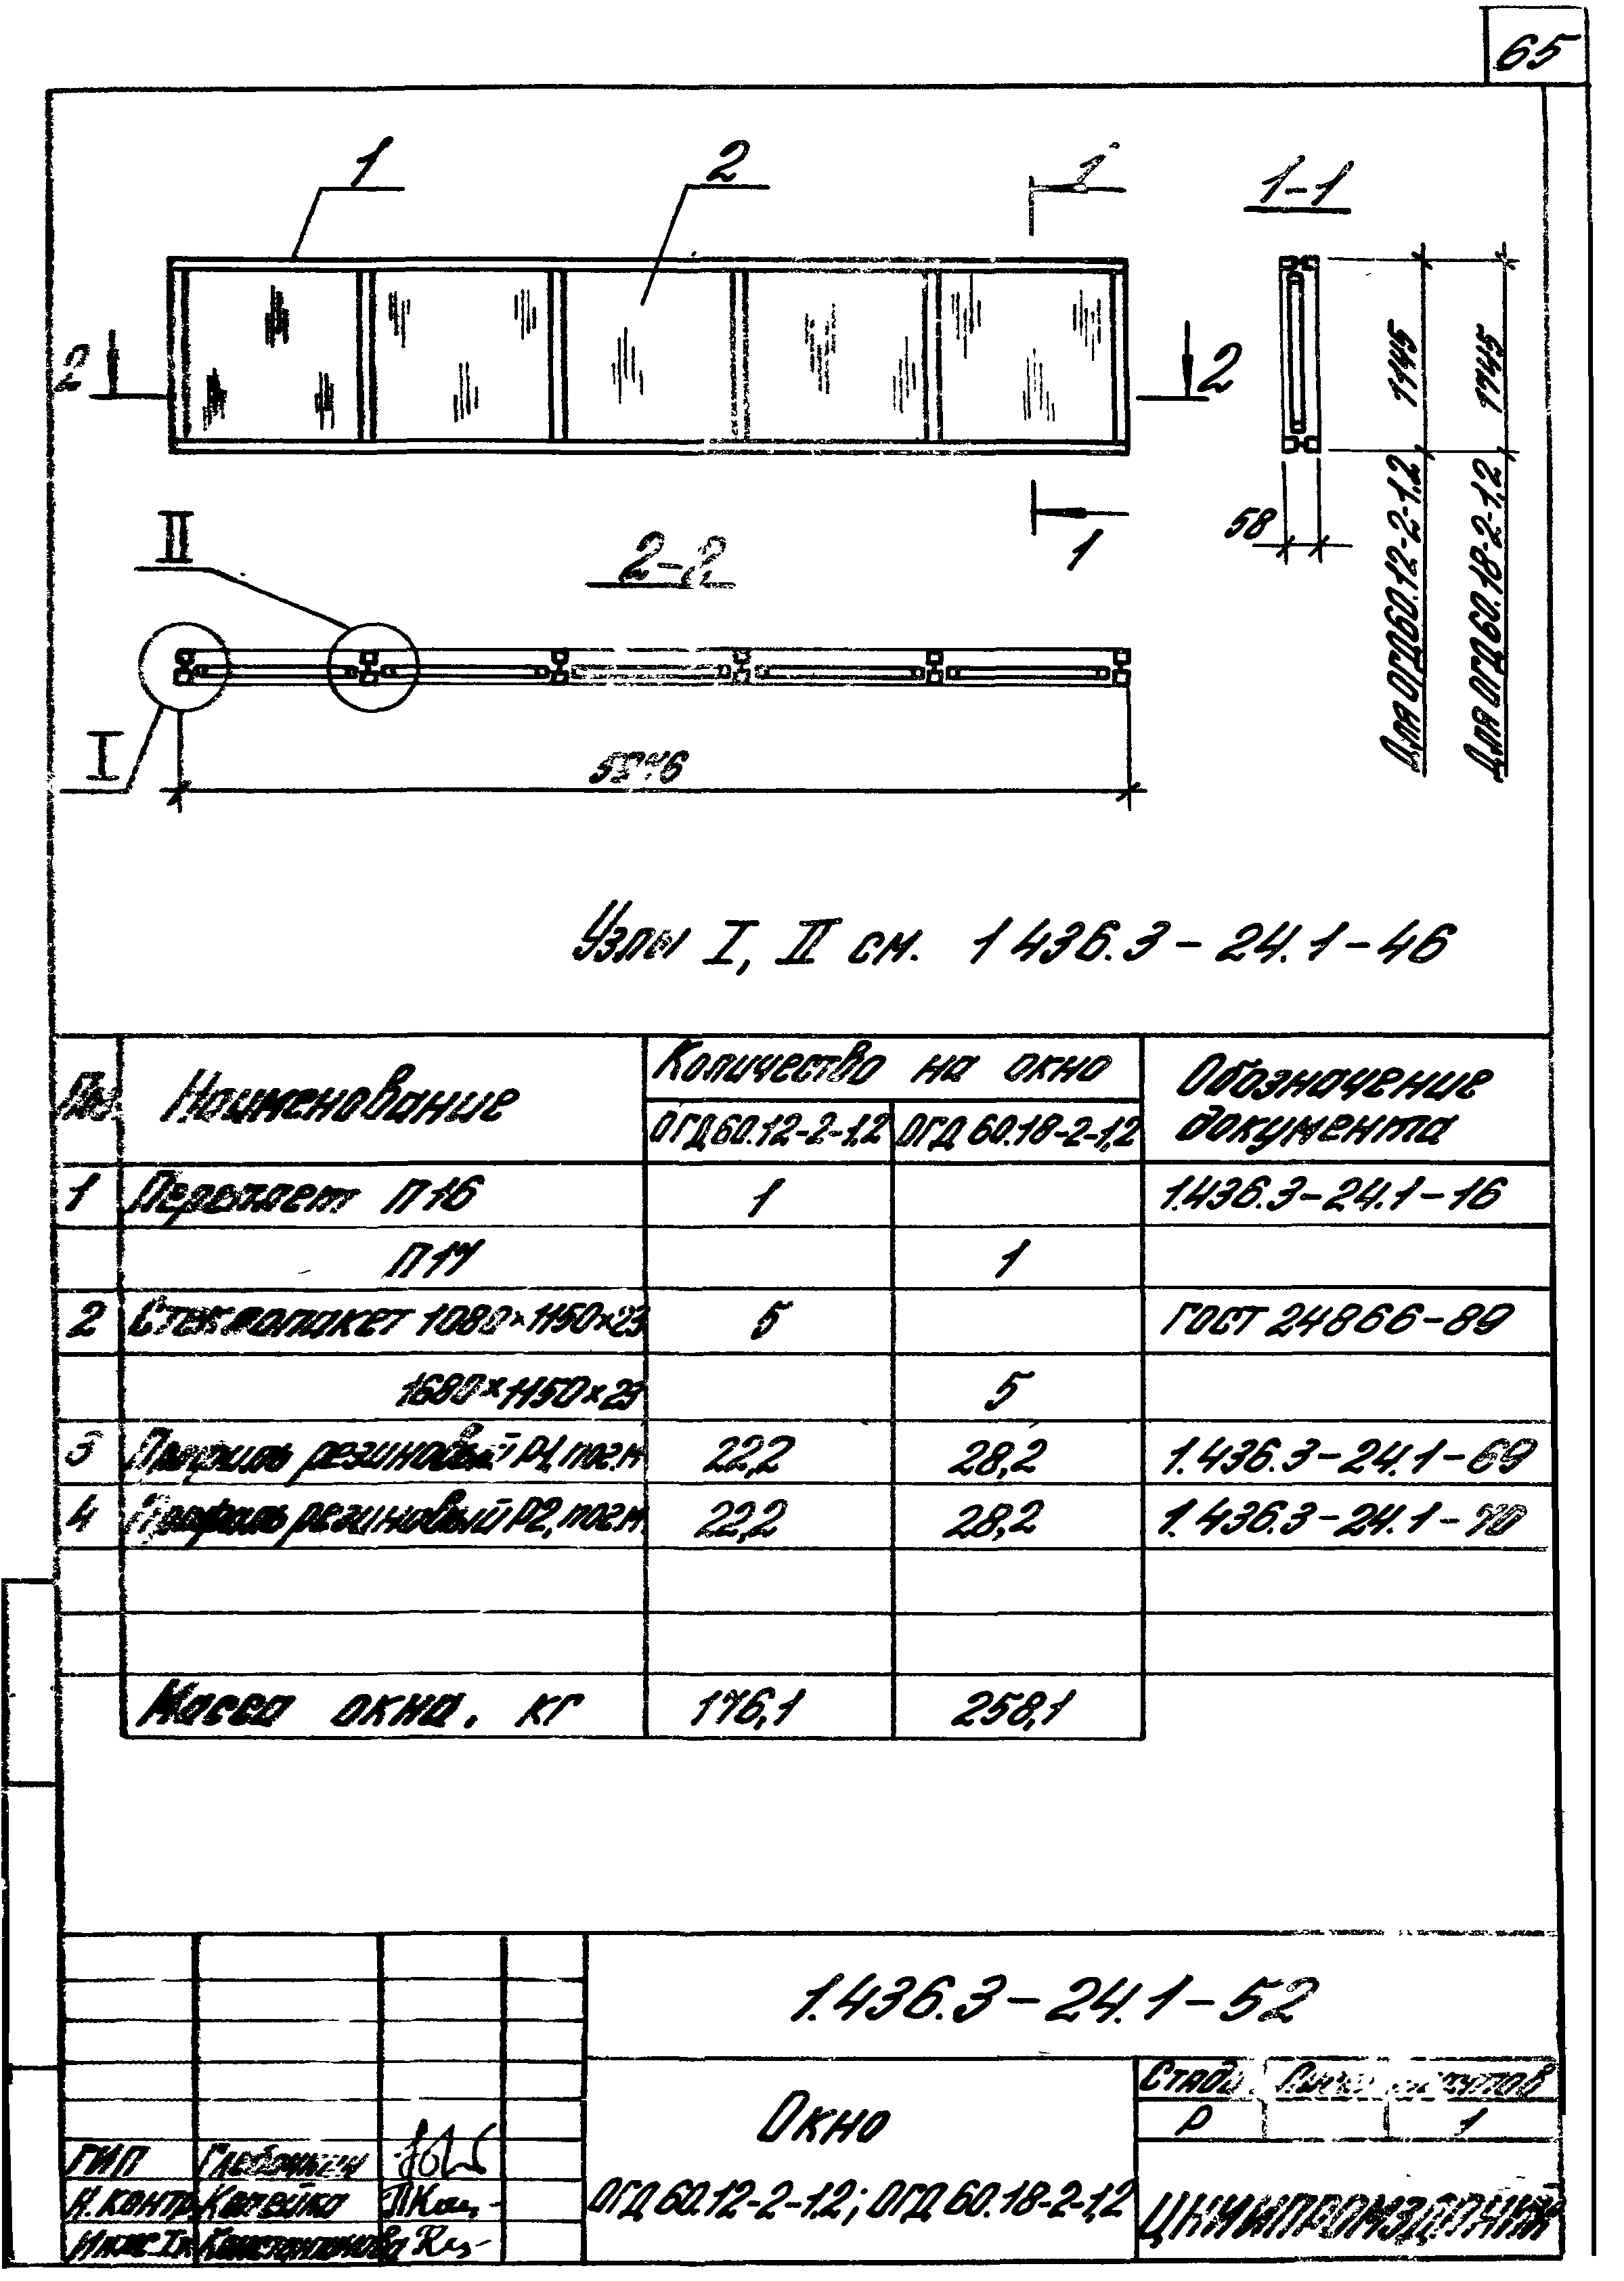 65
1
2
1
1-1
2
2
1145
1745
58
Для ОГД60.12-2-1,2
Для ОГД60.18-2-1,2
1
II
2-2
I
Узлы I, II см. 1 436.3-24.1-46
Поз. Наименование Количество на окно Обозначение документа
ОГД60.12-2-1,2 ОГД 60.18-2-1,2
1 Переплет П16 1 1.436.3-24.1-16
П17 1
2 Стеклопакет 1080×1150×23 5 ГОСТ 24866-89
1680×1150×23 5
3 Профиль резиновый Р1, пог.м 22,2 28,2 1.436.3-24.1-69
4 Профиль резиновый Р2, пог.м 22,2 28,2 1.436.3-24.1-70
Масса окна, кг 176,1 258,1
1.436.3-24.1-52
Окно
ОГД 60.12-2-1,2; ОГД 60.18-2-1,2
Р 1
ГИП
Н.контр. Копейко
Константинова